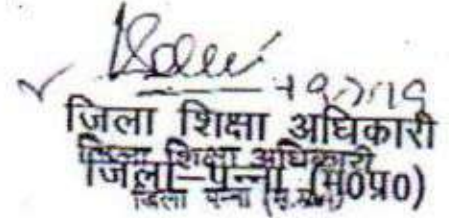 जिला शिक्षा अधिकारी
जिला शिक्षा अधिकारी
जिला-पन्ना (म०प्र०)
जिला पन्ना (म.प्र.)